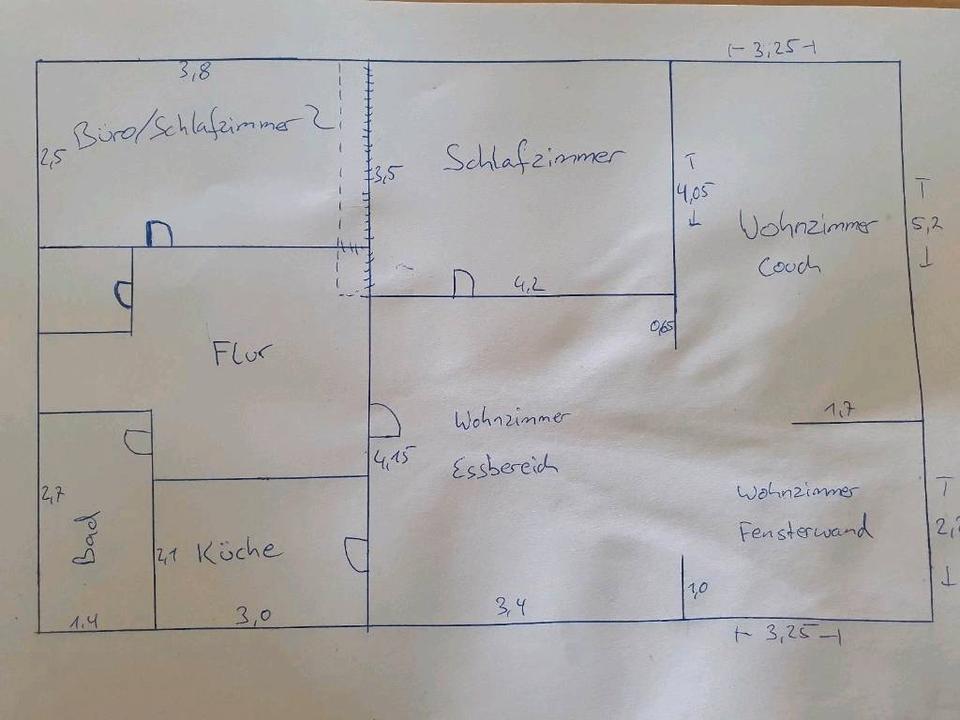 ⊢ 3,25 ⊣
3,8
Büro/Schlafzimmer 2
2,5
3,5
Schlafzimmer
4,05
5,2
Wohnzimmer
Couch
4,2
0,65
Flur
Wohnzimmer
Essbereich
1,7
4,15
2,7
Bad
2,1
Küche
Wohnzimmer
Fensterwand
1,0
1,4
3,0
3,4
⊢ 3,25 ⊣